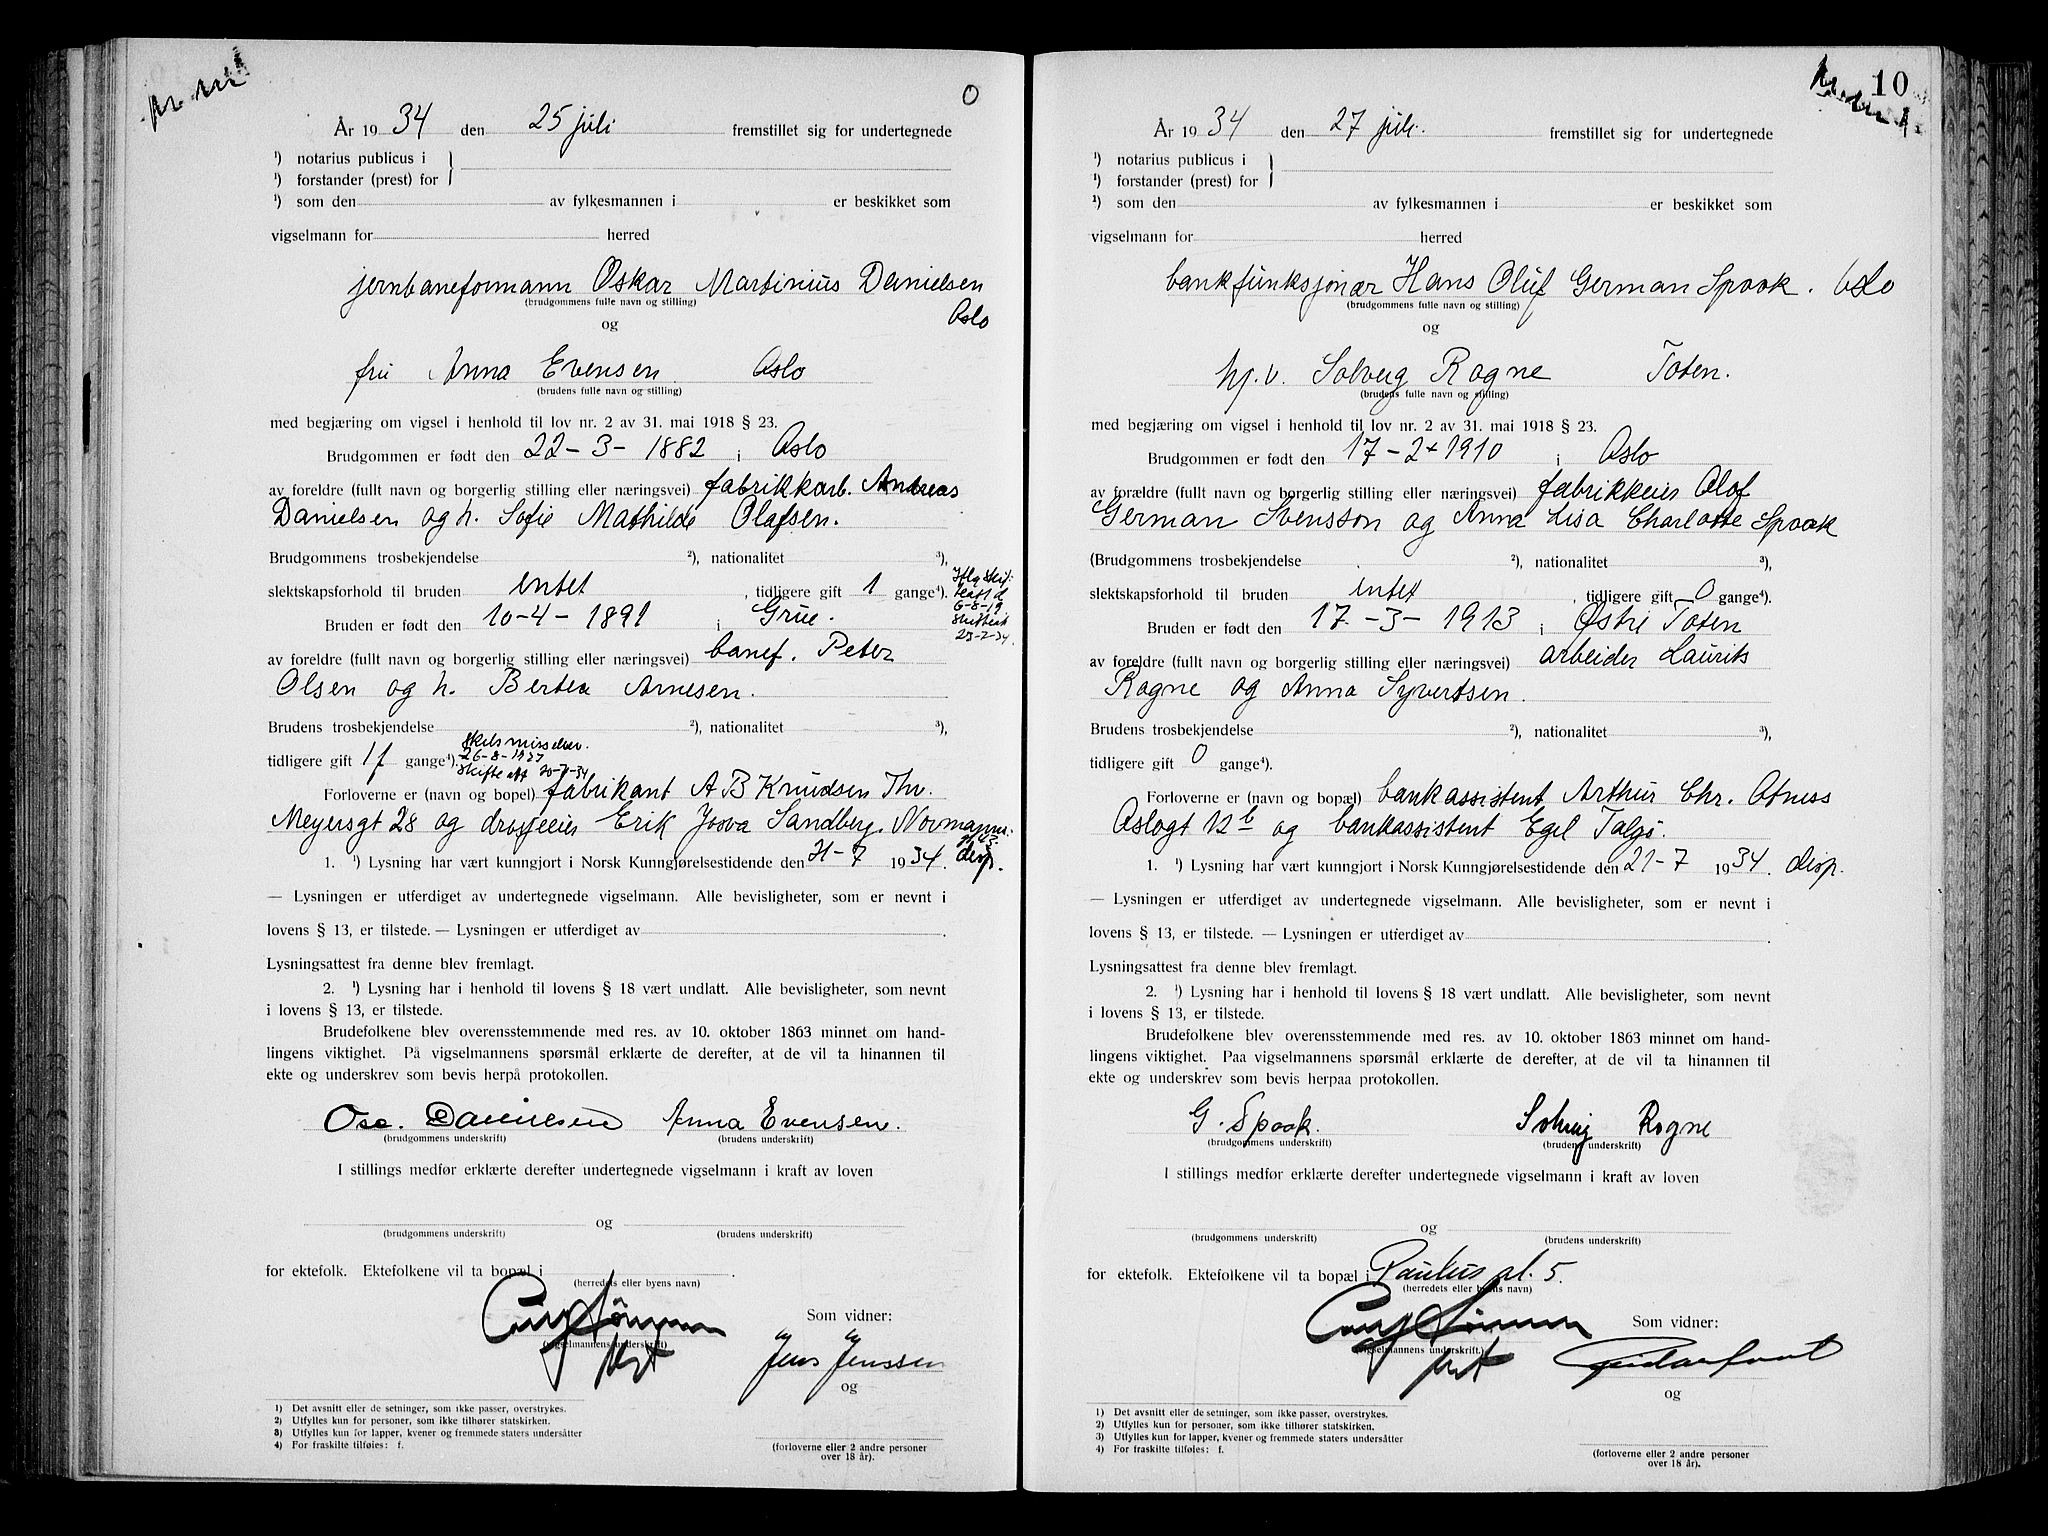 0
År 1934 den 25 juli fremstillet sig for undertegnede
¹) notarius publicus i
¹) forstander (prest) for
¹) som den av fylkesmannen i er beskikket som
vigselmann for herred
jernbaneformann Oskar Martinius Danielsen
(brudgommens fulle navn og stilling)
Oslo
og
fru Anna Evensen Oslo
(brudens fulle navn og stilling)
med begjæring om vigsel i henhold til lov nr. 2 av 31. mai 1918 § 23.
Brudgommen er født den 22-3-1882 i Oslo
av foreldre (fullt navn og borgerlig stilling eller næringsvei) fabrikkarb. Andreas
Danielsen og h. Sofie Mathilde Olafsen.
Brudgommens trosbekjendelse ²), nationalitet ³),
slektskapsforhold til bruden intet, tidligere gift 1 gange⁴).
6-8-19
Bruden er født den 10-4-1891 i Grue.
av foreldre (fullt navn og borgerlig stilling eller næringsvei) banef. Peter
Olsen og h. Bertea Arnesen.
Brudens trosbekjendelse ²), nationalitet ³),
Skilsmissebev.
26-8-1927
tidligere gift 1 f gange⁴).
Skifteatt
Forloverne er (navn og bopel) fabrikant A B Knudsen Thv.
Meyersgt 28 og drosjeeier Erik Josva Sandberg.
1. ¹) Lysning har vært kunngjort i Norsk Kunngjørelsestidende den 21-7 1934. disp.
— Lysningen er utferdiget av undertegnede vigselmann. Alle bevisligheter, som er nevnt i
lovens § 13, er tilstede. — Lysningen er utferdiget av
Lysningsattest fra denne blev fremlagt.
2. ¹) Lysning har i henhold til lovens § 18 vært undlatt. Alle bevisligheter, som nevnt
i lovens § 13, er tilstede.
Brudefolkene blev overensstemmende med res. av 10. oktober 1863 minnet om hand-
lingens viktighet. På vigselmannens spørsmål erklærte de derefter, at de vil ta hinannen til
ekte og underskrev som bevis herpå protokollen.
Osc. Danielsen Anna Evensen.
(brudgommens underskrift) (brudens underskrift)
I stillings medfør erklærte derefter undertegnede vigselmann i kraft av loven
og
(brudgommens underskrift) (brudens underskrift)
for ektefolk. Ektefolkene vil ta bopæl i
(herredets eller byens navn)
Som vidner:
(vigselmannens underskrift)
Jens Jenssen
og
1) Det avsnitt eller de setninger, som ikke passer, overstrykes.
2) Utfylles kun for personer, som ikke tilhører statskirken.
3) Utfylles kun for lapper, kvener og fremmede staters undersåtter
4) For fraskilte tilføies: f.
(forloverne eller 2 andre personer
over 18 år).
10
År 1934 den 27 juli. fremstillet sig for undertegnede
¹) notarius publicus i
¹) forstander (prest) for
¹) som den av fylkesmannen i er beskikket som
vigselmann for herred
bankfunksjonær Hans Oluf German Spaak. Oslo
(brudgommens fulle navn og stilling)
og
hj.v. Solveig Rogne Toten.
(brudens fulle navn og stilling)
med begjæring om vigsel i henhold til lov nr. 2 av 31. mai 1918 § 23.
Brudgommen er født den 17-2-1910 i Oslo
av forældre (fullt navn og borgerlig stilling eller næringsvei) fabrikkeier Olof
German Svensson og Anna Lisa Charlotte Spaak
(Brudgommens trosbekjendelse ²), nationalitet ³),
slektskapsforhold til bruden intet, tidligere gift 0 gange⁴).
Bruden er født den 17-3-1913 i Østre Toten
av foreldre (fullt navn og borgerlig stilling eller næringsvei) arbeider Laurits
Rogne og Anna Syvertsen.
Brudens trosbekjendelse ²), nationalitet ³),
tidligere gift 0 gange⁴).
Forloverne er (navn og bopæl) bankassistent Arthur Chr. Otness
Oslogt 12ᵇ og bankassistent Egil Talgø.
1. ¹) Lysning har vært kunngjort i Norsk Kunngjørelsestidende den 21-7 1934. disp.
— Lysningen er utferdiget av undertegnede vigselmann. Alle bevisligheter, som er nevnt i
lovens § 13, er tilstede. — Lysningen er utferdiget av
Lysningsattest fra denne blev fremlagt.
2. ¹) Lysning har i henhold til lovens § 18 vært undlatt. Alle bevisligheter, som nevnt
i lovens § 13, er tilstede.
Brudefolkene blev overensstemmende med res. av 10. oktober 1863 minnet om hand-
lingens viktighet. Paa vigselmannens spørsmål erklærte de derefter, at de vil ta hinannen til
ekte og underskrev som bevis herpaa protokollen.
G. Spaak. Solveig Rogne
(brudgommens underskrift) (brudens underskrift)
I stillings medfør erklærte derefter undertegnede vigselmann i kraft av loven
og
(brudgommens underskrift) (brudens underskrift)
for ektefolk. Ektefolkene vil ta bopæl i Paulus pl. 5.
(herredets eller byens navn)
Som vidner:
(vigselmannens underskrift)
og
1) Det avsnitt eller de setninger, som ikke passer, overstrykes.
2) Utfylles kun for personer, som ikke tilhører statskirken.
3) Utfylles kun for lapper, kvener og fremmede staters undersåtter
4) For fraskilte tilføies: f.
(forloverne eller 2 andre personer
over 18 år).